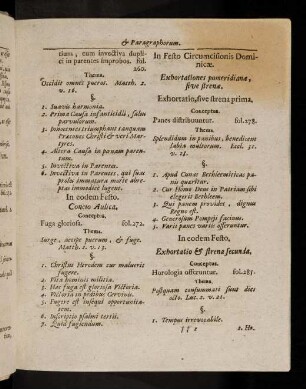 & Paragraphorum.
tiam, cum invectiva dupli-
ci in parentes improbos. fol.
260.
Thema.
Occidit omnes pueros. Matth. 2.
v. 16.
§.
1. Suavis harmonia.
2. Prima Causa infanticidii, salus
parvulorum.
3. Innocentes triumphant tanquam
Christi & veri Mar-
tyres.
4. Altera Causa in pœnam paren-
tum.
5. Invectiva in Parentes.
6. Invectiva in Parentes, qui sua
prolis immatura morte abre-
ptas immodicè lugent.
In eodem Festo.
Concio Aulica,
Conceptus.
Fuga gloriosa. fol. 272.
Thema.
Surge, accipe puerum, & fuge.
Matth. 2. v. 13.
§.
1. Christus Herodem cur maluerit
fugere.
2. Vita hominis militia.
3. Hæc fuga est gloriosa Victoria.
4. Victoria in pedibus Cervinis.
5. Fugere est insequi opportunita-
tem.
6. Inscriptio psalmi tertii.
7. Quid fugiendum.
In Festo Circumcisionis Domi-
nicæ.
Exhortationes pomeridianæ,
sive strenæ.
Exhortatio, sive strena prima.
Conceptus.
Panes distribuuntur. fol. 278.
Thema.
Splendidum in panibus, benedicent
labia multorum. Eccl. 31.
v. 28.
§.
1. Apud Cunas Bethleemiticas pa-
nis quæritur.
2. Cur Homo Deus in Patriam sibi
elegerit Bethleem.
3. Qui panem providet, dignus
Regno est.
4. Generosum Pompeji facinus.
5. Varii panes variis offeruntur.
In eodem Festo,
Exhortatio & strena secunda,
Conceptus.
Horologia offeruntur. fol. 285.
Thema.
Postquam consummati sunt dies
octo. Luc. 2. v. 21.
§.
1. Tempus irrevocabile.
2. Ho-